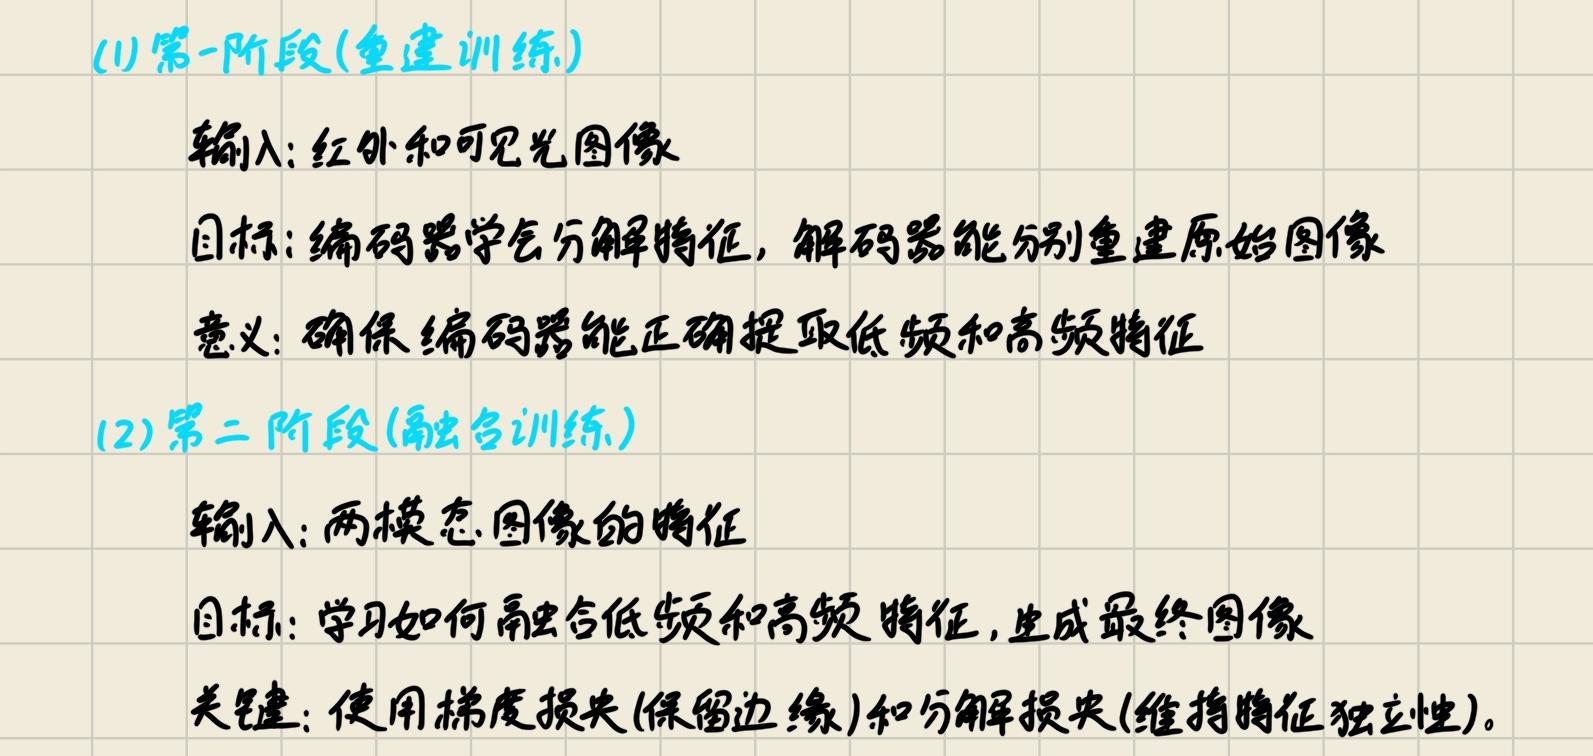 (1)第一阶段(重建训练)
输入:红外和可见光图像
目标:编码器学会分解特征,解码器能分别重建原始图像
意义:确保编码器能正确提取低频和高频特征
(2)第二阶段(融合训练)
输入:两模态图像的特征
目标:学习如何融合低频和高频特征,生成最终图像
关键:使用梯度损失(保留边缘)和分解损失(维持特征独立性)。